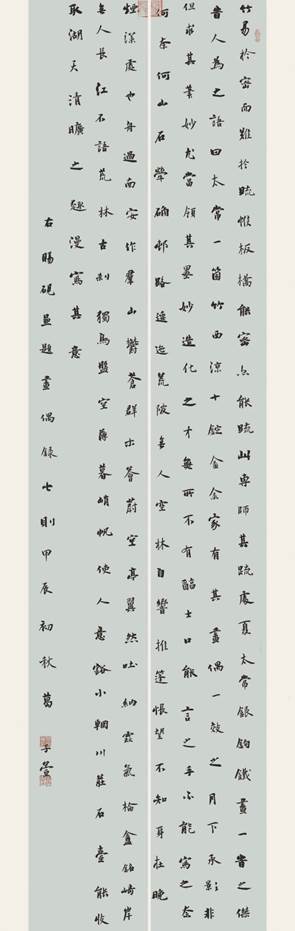 竹易於密而難於疏惟板橋能密亦能疏此專師其疏處夏太常銀鉤鐵畫一書之傑
昔人為之語曰太常一箇竹西涼十錠金余家有其畫偶一效之月下承影非
但求其葉妙尤當領其晏妙造化之才無所不有臨士口能言之手不能寫之奈
何奈何山石犖确邨路逶迤荒陂無人空林自響推篷悵望不知身在晚
煙深處也舟過南安作群山鬱蒼群木薈蔚空亭翼然吐納雲氣榆盦銘崎岸
無人長江石語荒林古刹獨鳥盤空薄暮峭帆使人意豁小輞川莊石壺能收
取湖天清曠之趣漫寫其意
右賜硯盦題畫偶錄七則甲辰初秋葛子萱